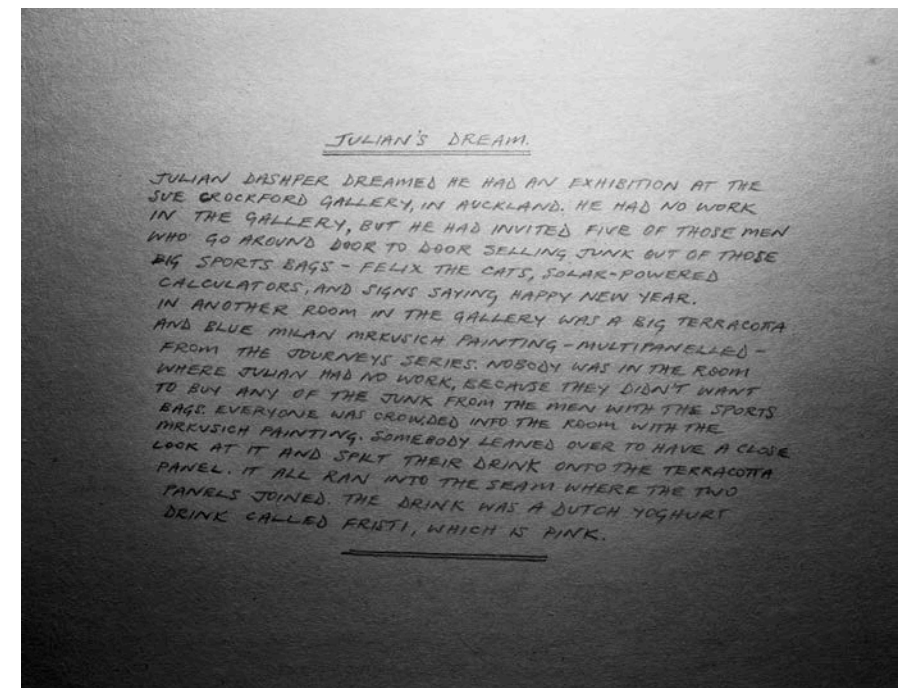 JULIAN'S DREAM.
JULIAN DASHPER DREAMED HE HAD AN EXHIBITION AT THE
SUE CROCKFORD GALLERY, IN AUCKLAND. HE HAD NO WORK
IN THE GALLERY, BUT HE HAD INVITED FIVE OF THOSE MEN
WHO GO AROUND DOOR TO DOOR SELLING JUNK OUT OF THOSE
BIG SPORTS BAGS - FELIX THE CATS, SOLAR-POWERED
CALCULATORS, AND SIGNS SAYING HAPPY NEW YEAR.
IN ANOTHER ROOM IN THE GALLERY WAS A BIG TERRACOTTA
AND BLUE MILAN MRKUSICH PAINTING - MULTIPANELLED -
FROM THE JOURNEYS SERIES. NOBODY WAS IN THE ROOM
WHERE JULIAN HAD NO WORK, BECAUSE THEY DIDN'T WANT
TO BUY ANY OF THE JUNK FROM THE MEN WITH THE SPORTS
BAGS. EVERYONE WAS CROWDED INTO THE ROOM WITH THE
MRKUSICH PAINTING. SOMEBODY LEANED OVER TO HAVE A CLOSE
LOOK AT IT AND SPILT THEIR DRINK ONTO THE TERRACOTTA
PANEL. IT ALL RAN INTO THE SEAM WHERE THE TWO
PANELS JOINED. THE DRINK WAS A DUTCH YOGHURT
DRINK CALLED FRISTI, WHICH IS PINK.